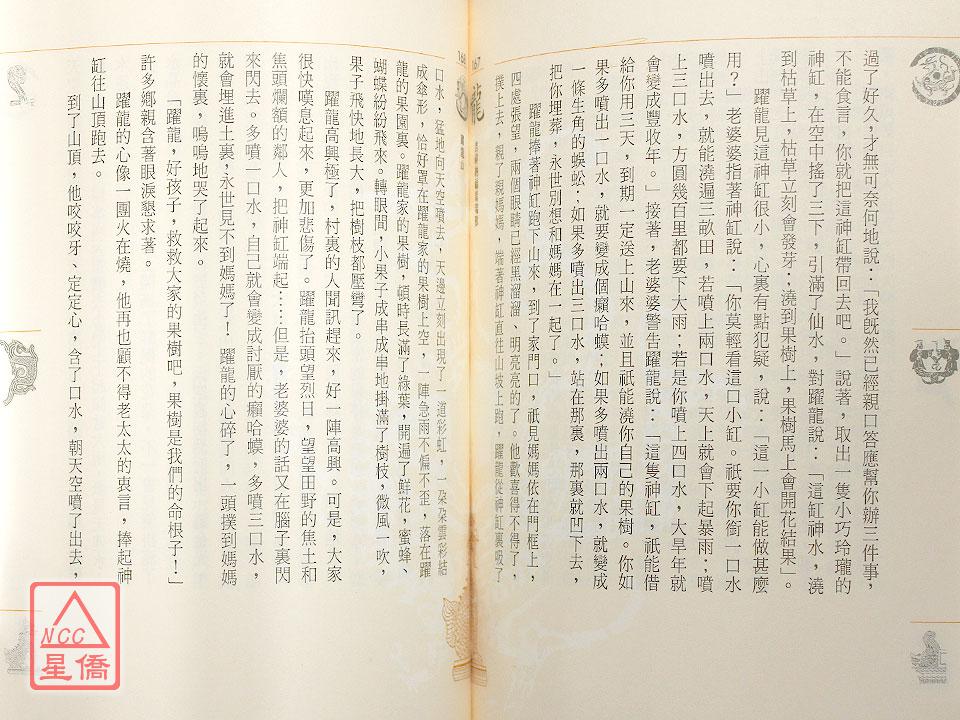 過了好久，才無可奈何地說：「我既然已經親口答應幫你辦三件事，
不能食言，你就把這神缸帶回去吧。」說著，取出一隻小巧玲瓏的
神缸，在空中搖了三下，引滿了仙水，對躍龍說：「這缸神水，澆
到枯草上，枯草立刻會發芽；澆到果樹上，果樹馬上會開花結果」。
躍龍見這神缸很小，心裏有點犯疑，說：「這一小缸能做甚麼
用？」老婆婆指著神缸說：「你莫輕看這口小缸。祇要你銜一口水
噴出去，就能澆遍三畝田，若噴上兩口水，天上就會下起暴雨；噴
上三口水，方圓幾百里都要下大雨；若是你噴上四口水，大旱年就
會變成豐收年。」接著，老婆婆警告躍龍說：「這隻神缸，祇能借
給你用三天，到期一定送上山來，並且祇能澆你自己的果樹。你如
果多噴出一口水，就要變成個癩哈蟆；如果多噴出兩口水，就變成
一條生角的蜈蚣；如果多噴出三口水，站在那裏，那裏就凹下去，
把你埋葬，永世別想和媽媽在一起了。」
躍龍捧著神缸跑下山來，到了家門口，祇見媽媽依在門框上，
四處張望，兩個眼睛已經黑溜溜、明亮亮的了。他歡喜得不得了，
撲上去，親了親媽媽，端著神缸直往山坡上跑，躍龍從神缸裏吸了
167
龍
168
口水，猛地向天空噴去，天邊立刻出現了一道彩虹，一朶雲彩結
成傘形，恰好罩在躍龍家的果樹上空，一陣急雨不偏不歪，落在躍
龍的果園裏。躍龍家的果樹，頓時長滿了綠葉，開遍了鮮花，蜜蜂、
蝴蝶紛紛飛來。轉眼間，小果子成串成串地掛滿了樹枝，微風一吹，
果子飛快地長大，把樹枝都壓彎了。
躍龍高興極了，村裏的人聞訊趕來，好一陣高興。可是，大家
很快嘆息起來，更加悲傷了。躍龍抬頭望烈日，望望田野的焦土和
焦頭爛額的鄰人，把神缸端起……但是，老婆婆的話又在腦子裏閃
來閃去。多噴一口水，自己就會變成討厭的癩哈蟆，多噴三口水，
就會埋進土裏，永世見不到媽媽了！躍龍的心碎了，一頭撲到媽媽
的懷裏，嗚嗚地哭了起來。
「躍龍，好孩子，救救大家的果樹吧，果樹是我們的命根子！」
許多鄉親含著眼淚懇求著。
躍龍的心像一團火在燒，他再也顧不得老太太的衷言，捧起神
缸往山頂跑去。
到了山頂，他咬咬牙、定定心，含了口水，朝天空噴了出去，
NCC
星僑